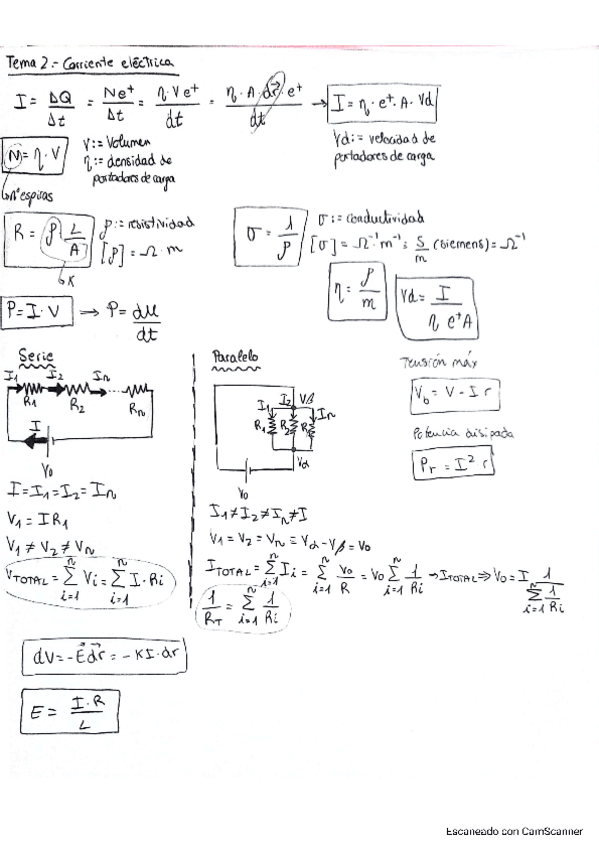 Tema 2.- Corriente eléctrica
I = ΔQ/Δt = Ne⁺/Δt = η·V e⁺/dt = η·A·dr·e⁺/dt → I = η·e⁺·A·Vd
N = η·V
V:= Volumen
η:= densidad de
portadores de carga
Vd:= velocidad de
portadores de carga
nº espiras
R = ρ L/A
ρ:= resistividad
[ρ] = Ω·m
K
σ = 1/ρ
σ:= conductividad
[σ] = Ω⁻¹m⁻¹; S/m (siemens) = Ω⁻¹
η = ρ/m
Vd = I/η e⁺A
P = I·V → P = dU/dt
Serie
I1 I2 In
R1 R2 Rn
I
V0
I = I1 = I2 = In
V1 = IR1
V1 ≠ V2 ≠ Vn
VTOTAL = Σ(i=1, n) Vi = Σ(i=1, n) I·Ri
Paralelo
I1 I2 Vβ In
R1 R2 R
Vα
V0
I1 ≠ I2 ≠ In ≠ I
V1 = V2 = Vn = Vα - Vβ = V0
ITOTAL = Σ(i=1, n) Ii = Σ(i=1, n) V0/R = V0 Σ(i=1, n) 1/Ri → ITOTAL ⇒ V0 = I 1/Σ(i=1, n) 1/Ri
1/RT = Σ(i=1, n) 1/Ri
Tensión máx
Vb = V - I r
Potencia disipada
Pr = I² r
dV = -E dr = -KI·dr
E = I·R/L
Escaneado con CamScanner